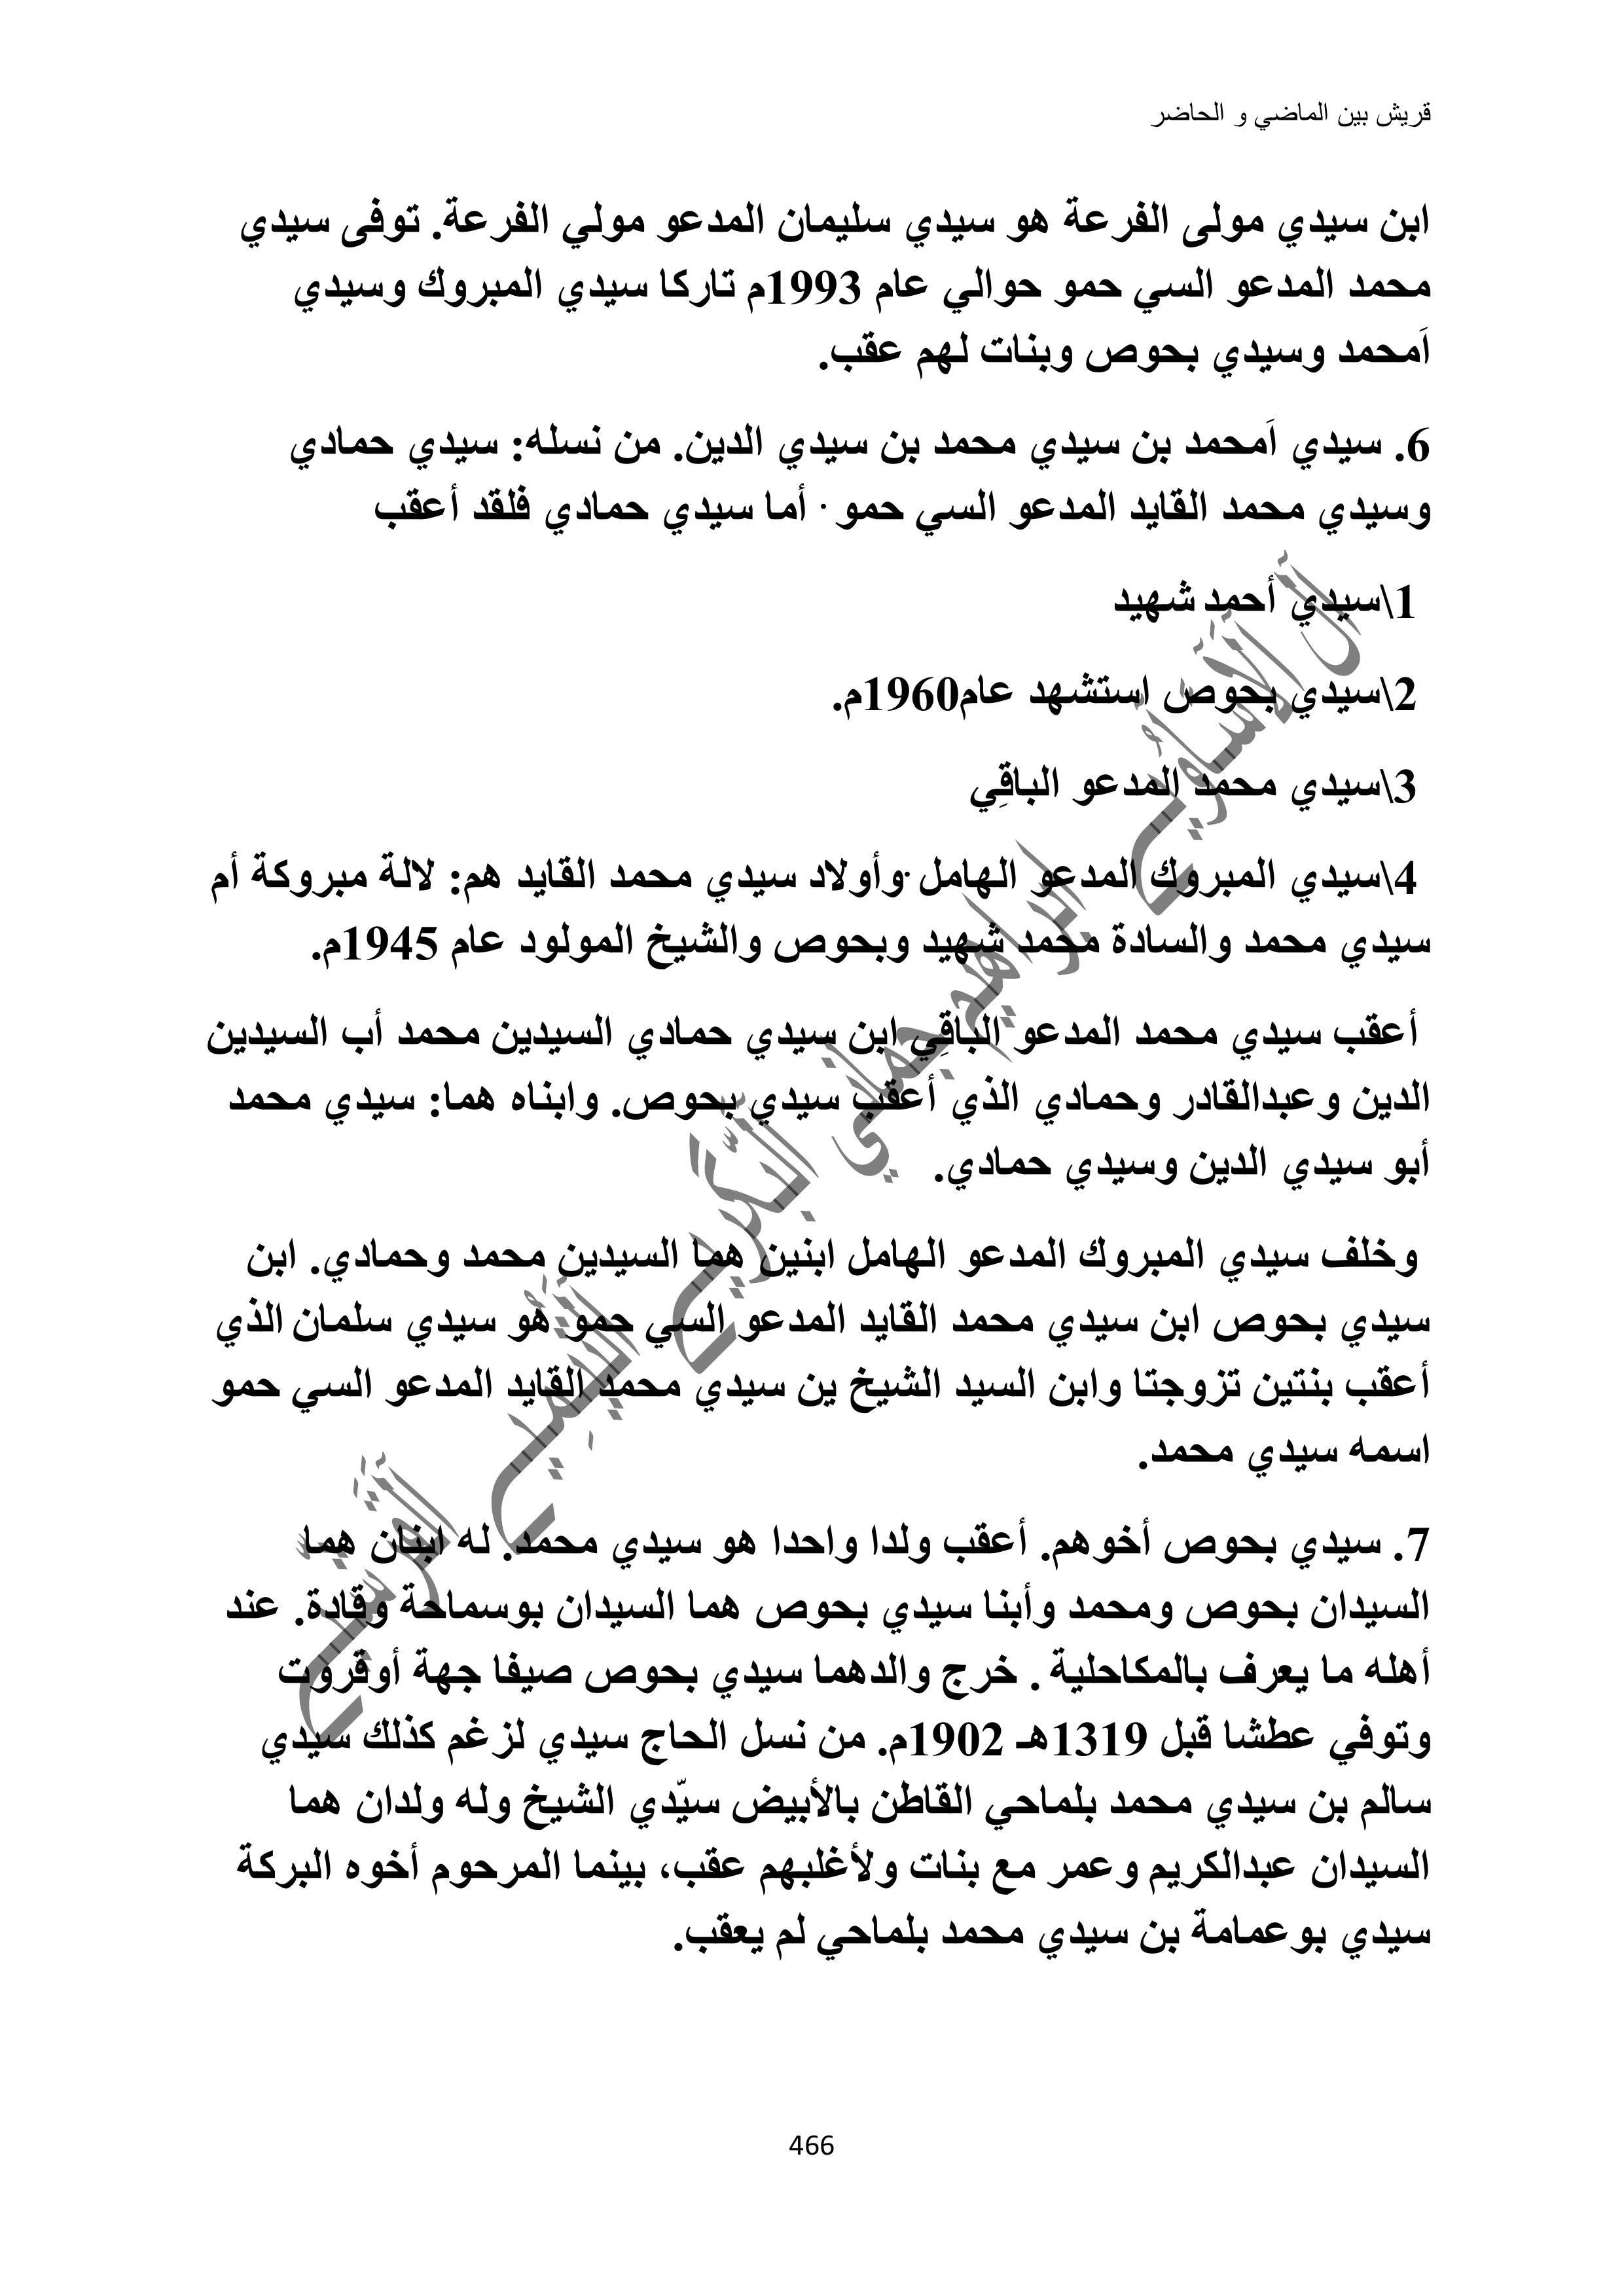 قريش بين الماضي و الحاضر
ابن سيدي مولى الفرعة هو سيدي سليمان المدعو مولي الفرعة. توفى سيدي
محمد المدعو السي حمو حوالي عام 1993م تاركا سيدي المبروك وسيدي
اَمحمد وسيدي بحوص وبنات لهم عقب.
6. سيدي اَمحمد بن سيدي محمد بن سيدي الدين. من نسله: سيدي حمادي
وسيدي محمد القايد المدعو السي حمو . أما سيدي حمادي فلقد أعقب
1\سيدي أحمد شهيد
2\سيدي بحوص استشهد عام1960م.
3\سيدي محمد المدعو الباقِي
4\سيدي المبروك المدعو الهامل .وأولاد سيدي محمد القايد هم: لالة مبروكة أم
سيدي محمد والسادة محمد شهيد وبحوص والشيخ المولود عام 1945م.
أعقب سيدي محمد المدعو الباقِي ابن سيدي حمادي السيدين محمد أب السيدين
الدين وعبدالقادر وحمادي الذي أعقب سيدي بحوص. وابناه هما: سيدي محمد
أبو سيدي الدين وسيدي حمادي.
وخلف سيدي المبروك المدعو الهامل ابنين هما السيدين محمد وحمادي. ابن
سيدي بحوص ابن سيدي محمد القايد المدعو السي حمو هو سيدي سلمان الذي
أعقب بنتين تزوجتا وابن السيد الشيخ ين سيدي محمد القايد المدعو السي حمو
اسمه سيدي محمد.
7. سيدي بحوص أخوهم. أعقب ولدا واحدا هو سيدي محمد. له ابنان هما
السيدان بحوص ومحمد وأبنا سيدي بحوص هما السيدان بوسماحة وقادة. عند
أهله ما يعرف بالمكاحلية . خرج والدهما سيدي بحوص صيفا جهة أوقروت
وتوفي عطشا قبل 1319هـ 1902م. من نسل الحاج سيدي لزغم كذلك سيدي
سالم بن سيدي محمد بلماحي القاطن بالأبيض سيّدي الشيخ وله ولدان هما
السيدان عبدالكريم وعمر مع بنات ولأغلبهم عقب، بينما المرحوم أخوه البركة
سيدي بوعمامة بن سيدي محمد بلماحي لم يعقب.
466